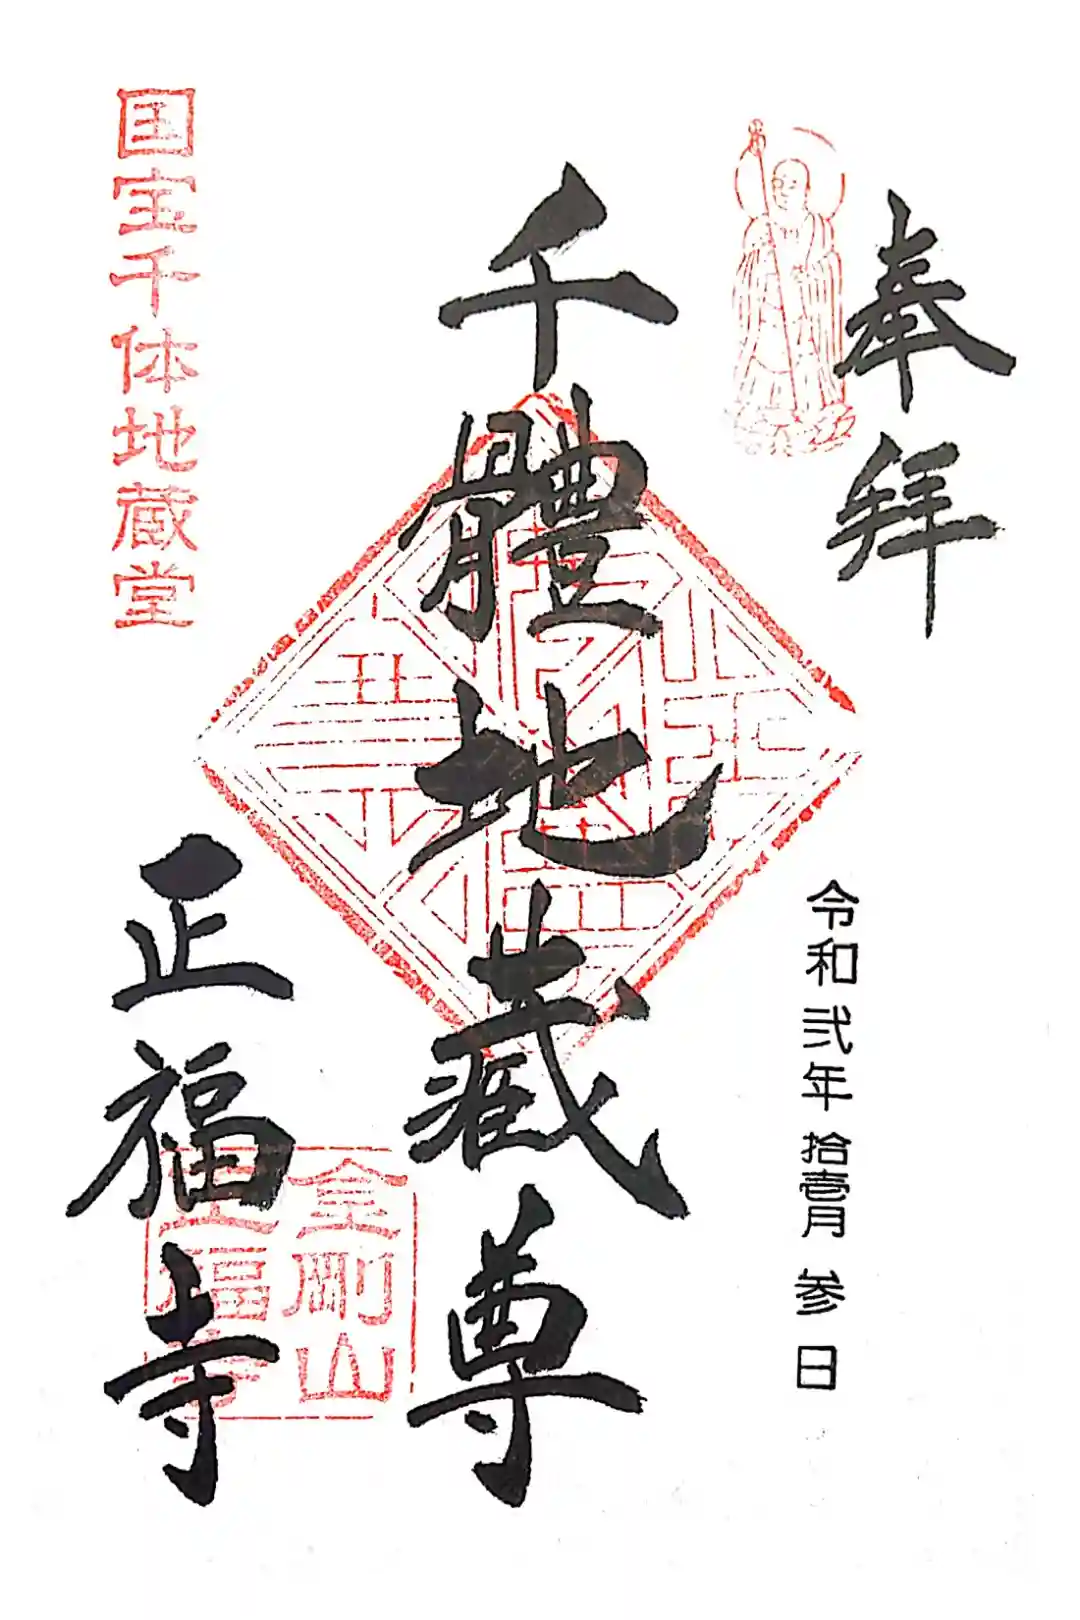 奉拝
令和弐年拾壱月参日
千體地蔵尊
正福寺
国宝千体地蔵堂
金剛山
正福寺